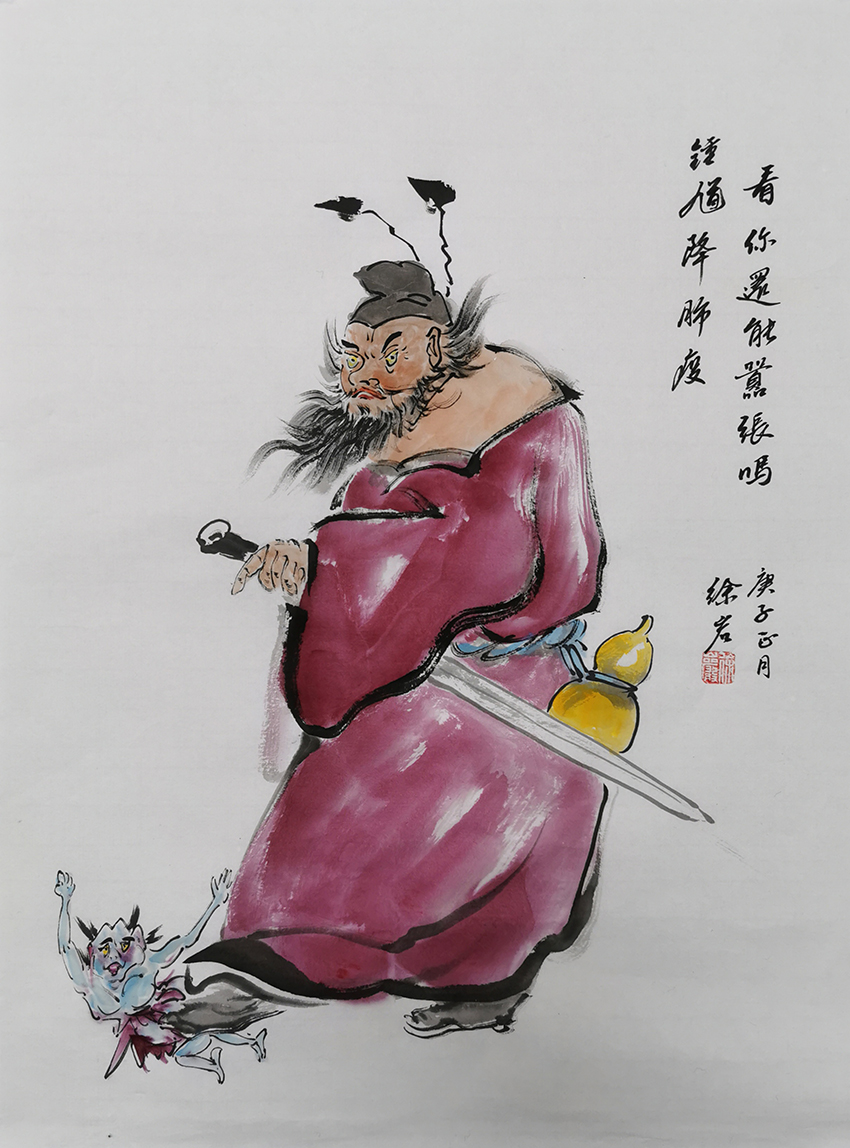 看你還能囂張嗎
鍾馗降肺疫
庚子正月
徐岩